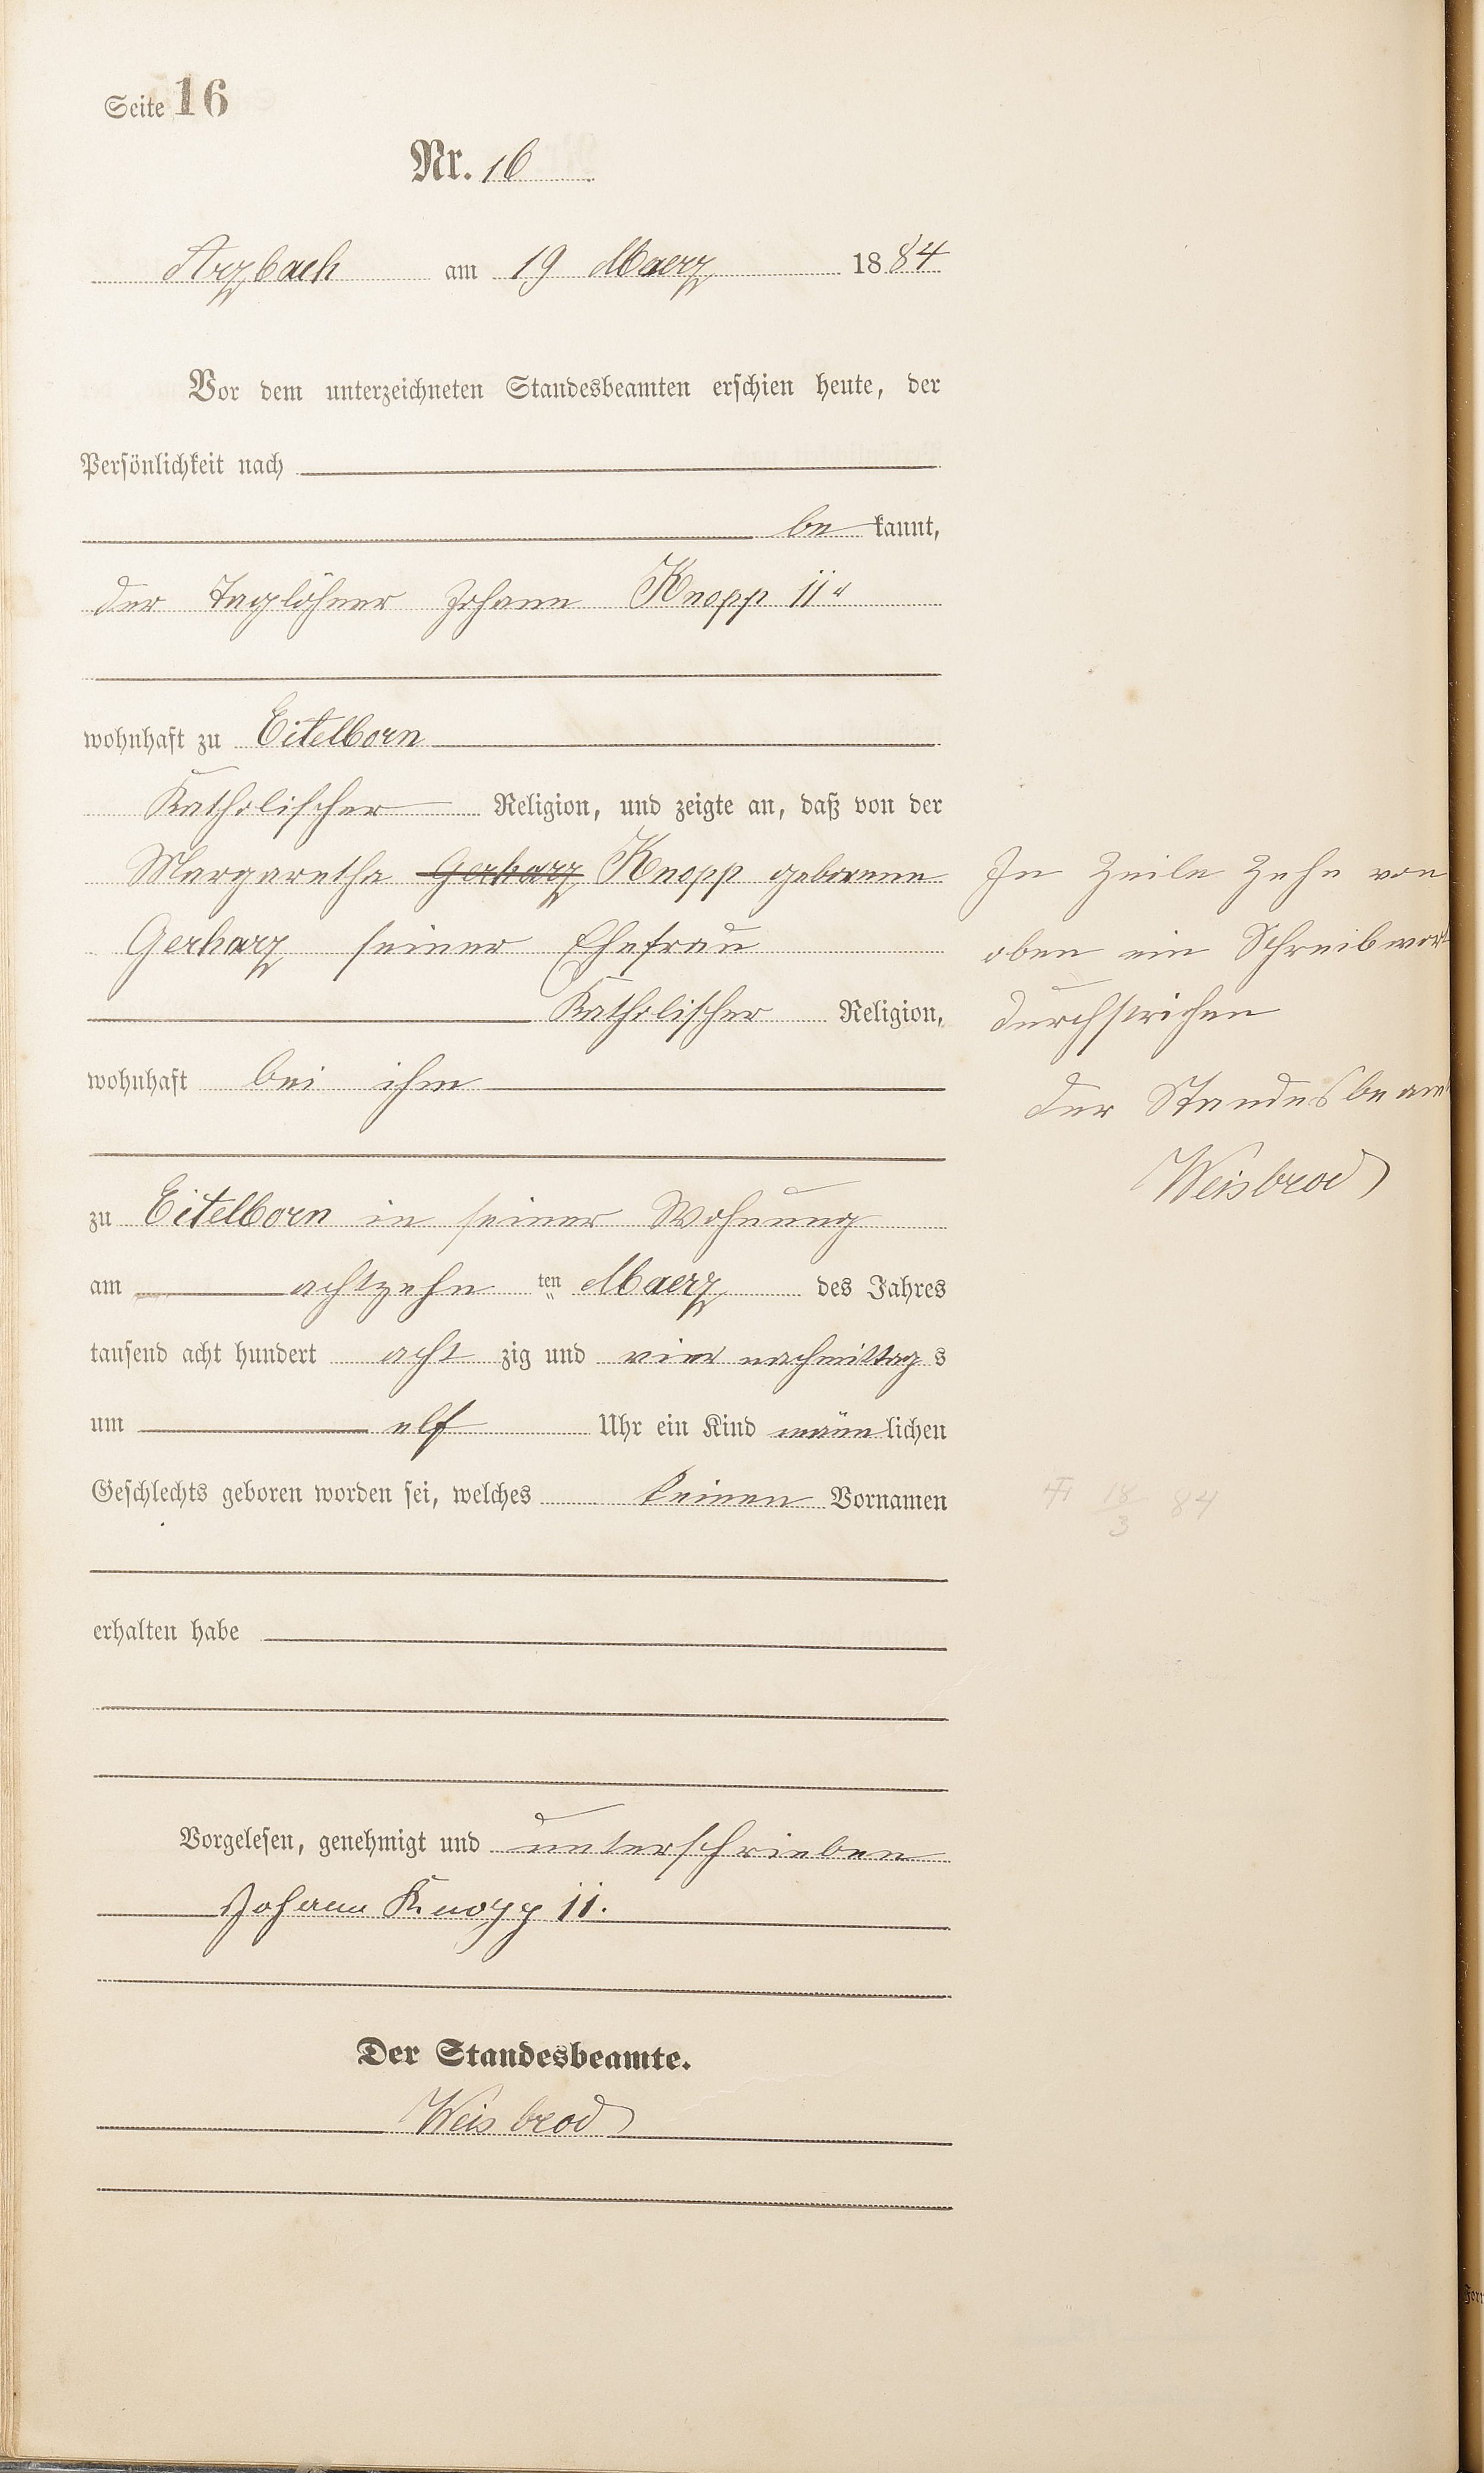 Seite 16
Nr. 16
Arzbach am 19 Maerz 1884
Vor dem unterzeichneten Standesbeamten erschien heute, der
Persönlichkeit nach
be kannt,
der Taglöhner Johann Knopp II r
wohnhaft zu Eitelborn
Katholischer Religion, und zeigte an, daß von der
Margaretha Gerharz Knopp geborenen
Gerharz seiner Ehefrau
Katholischer Religion,
wohnhaft bei ihm
zu Eitelborn in seiner Wohnung
am achtzehn ten Maerz des Jahres
tausend acht hundert acht zig und vier nachmittag s
um elf Uhr ein Kind männlichen
Geschlechts geboren worden sei, welches keinen Vornamen
erhalten habe
Vorgelesen, genehmigt und unterschrieben
Johann Knopp II.
Der Standesbeamte.
Weisbrod
In Zeile Zehn von
oben ein Schreibwort
durchstrichen
der Standesbeamt
Weisbrod
18/3 84